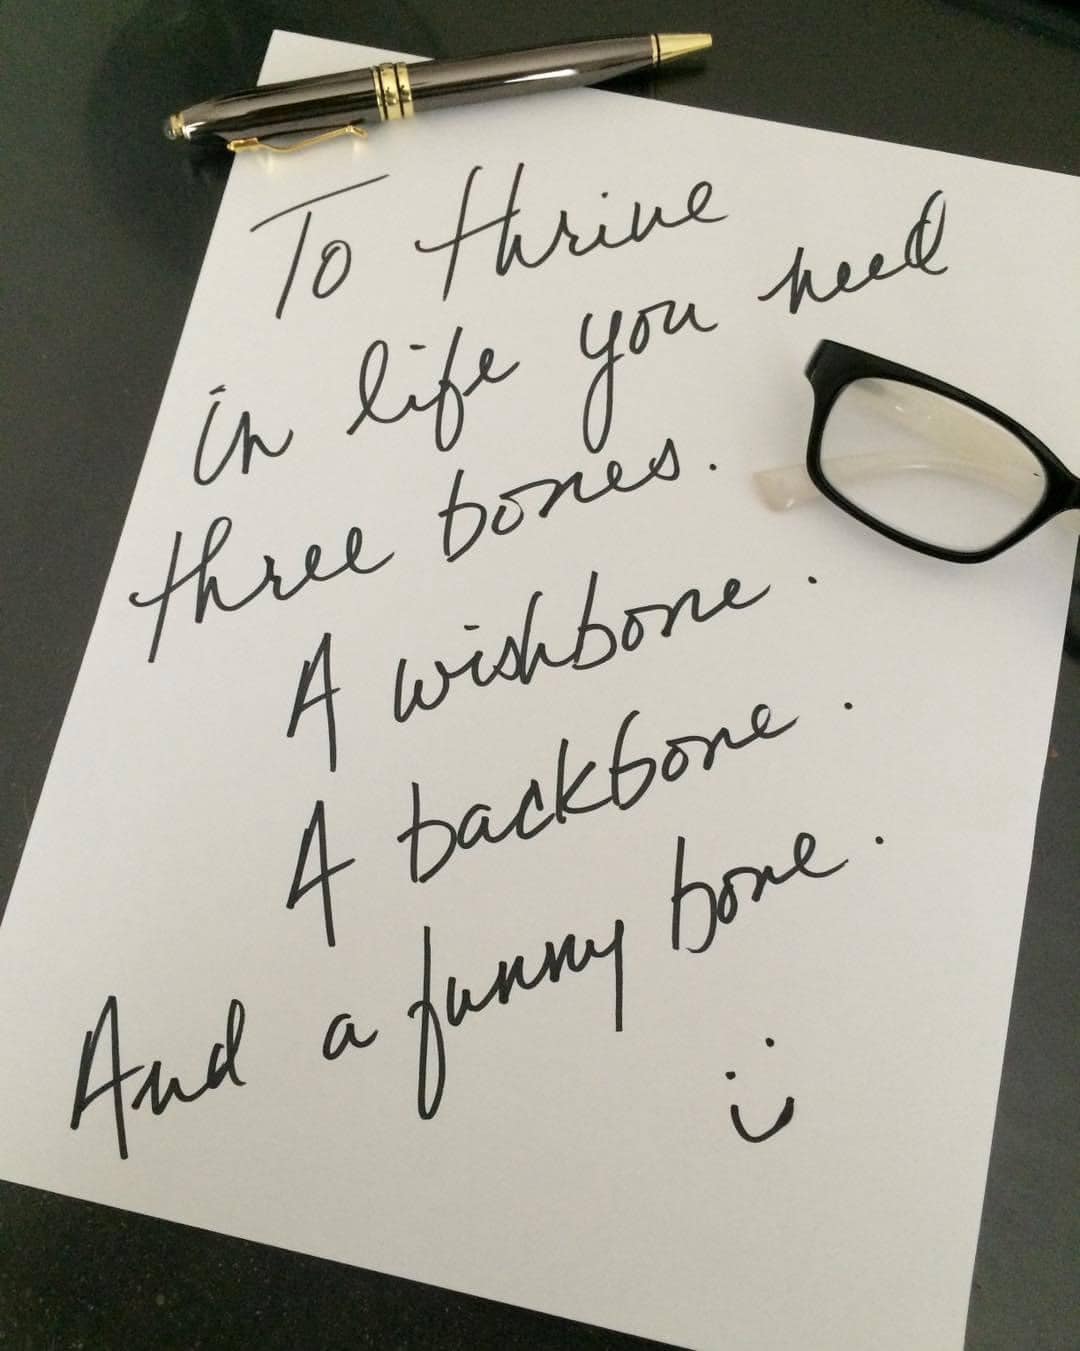 To thrive
in life you need
three bones.
A wishbone.
A backbone.
And a funny bone.